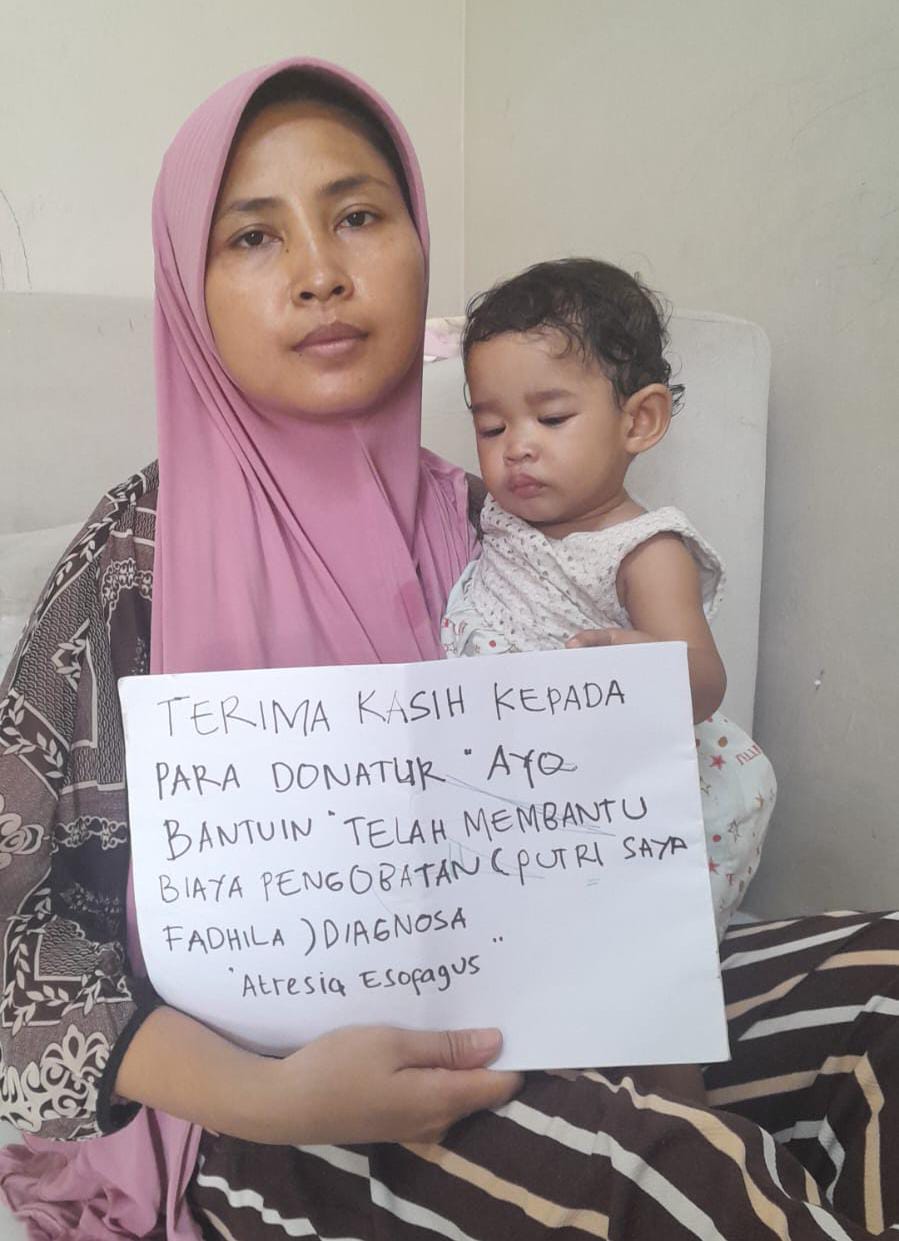 TERIMA KASIH KEPADA
PARA DONATUR "AYO
BANTUIN" TELAH MEMBANTU
BIAYA PENGOBATAN (PUTRI SAYA
FADHILA) DIAGNOSA
"Atresia Esofagus"